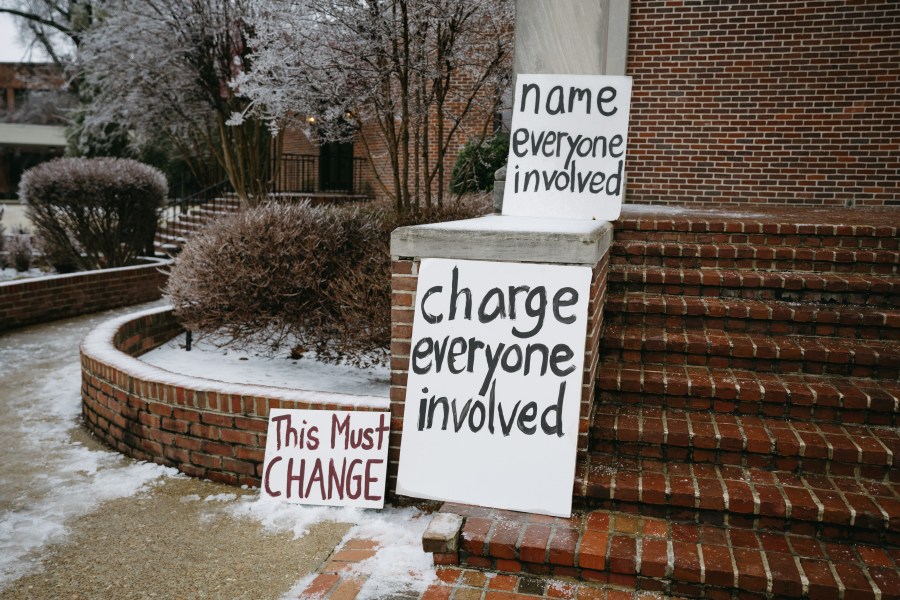 name
everyone
involved
charge
everyone
involved
This Must
CHANGE